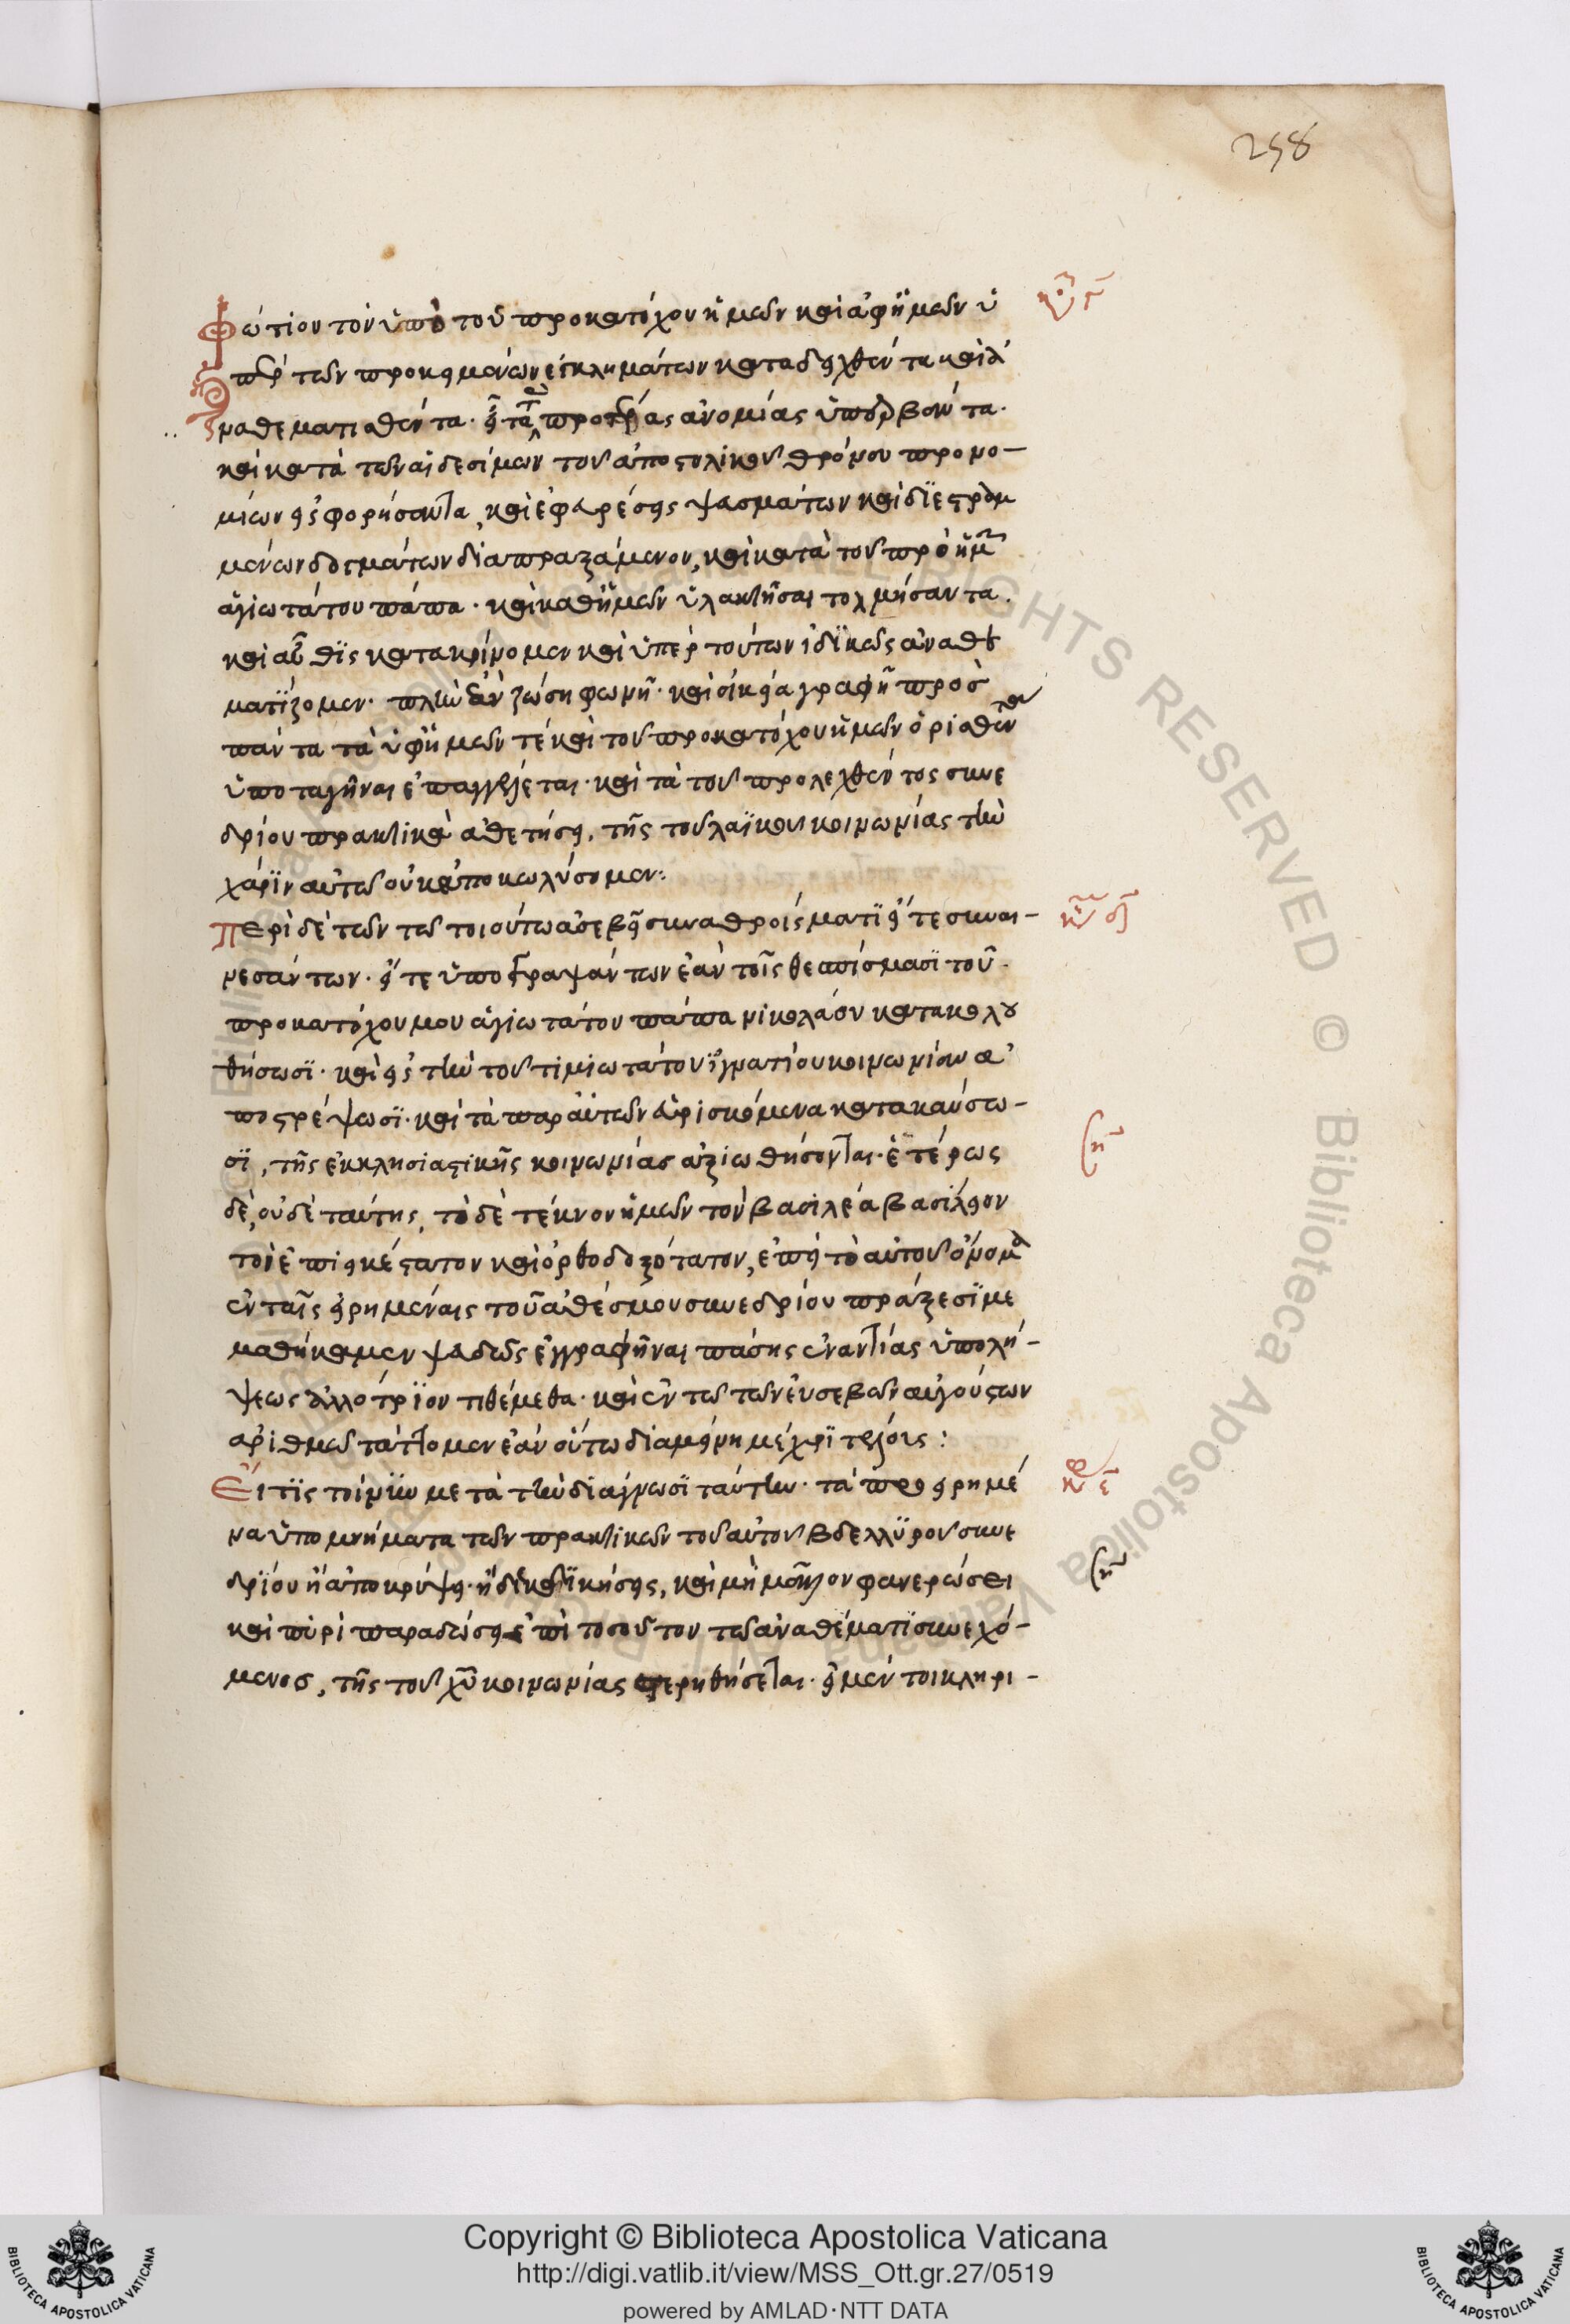 258
Φώτιον τὸν ὑπὸ τοῦ προκατόχου ἡμῶν καὶ ἀφ' ἡμῶν ὑ
πὲρ τῶν προκειμένων ἐγκλημάτων καταδειχθέντα καὶ ἀ
ναθεματισθέντα. εἶτα προτέρας ἀνομίας ὑπερβάντα.
καὶ κατὰ τῶν αἰδεσίμων τοῦ ἀποστολικοῦ θρόνου προνο-
μίων εἰσφορήσαντα, καὶ ἐφαιρέσεις ψασμάτων καὶ διεστραμ
μένων δογμάτων διαπραξάμενον, καὶ κατὰ τοῦ πρὸ ἡμῶν
ἁγιωτάτου πάπα. καὶ καθ' ἡμῶν ὑλακτῆσαι τολμήσαντα.
καὶ αὖθις κατακρίνομεν καὶ ὑπὲρ τούτων ἰδικῶς ἀναθε
ματίζομεν. πλὴν ἐὰν ζώσῃ φωνῇ. καὶ οἰκείᾳ γραφῇ πρὸς
πάντα τὰ ὑφ' ἡμῶν τέ καὶ τοῦ προκατόχου ἡμῶν ὁρισθέντα
ὑποταγῆναι ἐπαγγέλεται. καὶ τὰ τοῦ προλεχθέντος συνε
δρίου πρακτικὰ ἀθετήσει, τῆς τοῦ λαϊκοῦ κοινωνίας τὴν
χάριν αὐτῶ οὐκ ἀποκωλύσομεν:
Περὶ δὲ τῶν τῶ τοιούτω ἀσεβεῖ συναθροίσματι εἴτε συναι-
νεσάντων. εἴτε ὑπογραψάντων ἐὰν τοῖς θεσπίσμασι τοῦ
προκατόχου μου ἁγιωτάτου πάπα νικολάου κατακολου
θήσωσι. καὶ εἰς τὴν τοῦ τιμιωτάτου ἰγνατίου κοινωνίαν ἀ
ποστρέψωσι. καὶ τὰ παρ' αὐτῶν εὑρισκόμενα κατακαύσω-
σι, τῆς ἐκκλησιαστικῆς κοινωνίας ἀξιωθήσονται. ἑτέρως
δὲ, οὐδὲ ταύτης, τὸ δὲ τέκνον ἡμῶν τὸν βασιλέα βασίλειον
τὸν ἐπιεικέστατον καὶ ὀρθοδοξότατον, ἐπεὶ τὸ αὐτοῦ ὄνομα
ἐν ταῖς εἰρημέναις τοῦ ἀθέσμου συνεδρίου πράξεσι με
μαθήκαμεν ψευδῶς ἐγγραφῆναι πάσης ἐναντίας ὑπολή-
ψεως ἀλλότριον τιθέμεθα. καὶ ἐν τῶ τῶν εὐσεβῶν αὐγούστων
ἀριθμῶ τάττομεν ἐὰν οὕτω διαμείνη μέχρι τέλους:
Εἴ τις τοίνυν μετὰ τὴν διάγνωσι ταύτην. τὰ προειρημέ
να ὑπομνήματα τῶν πρακτικῶν τοῦ αὐτοῦ βδελλυροῦ συνε
δρίου ἢ ἀποκρύψει. ἢ δικδικήσεις, καὶ μὴ μᾶλλον φανερώσει
καὶ πυρὶ παραδώσει ἐπὶ τοσοῦτον τῶ ἀναθέματι συνεχό-
μενος, τῆς τοῦ χυ κοινωνίας στερηθήσεται. εἰ μέν τοι κληρι-
Copyright © Biblioteca Apostolica Vaticana
http://digi.vatlib.it/view/MSS_Ott.gr.27/0519
powered by AMLAD·NTT DATA